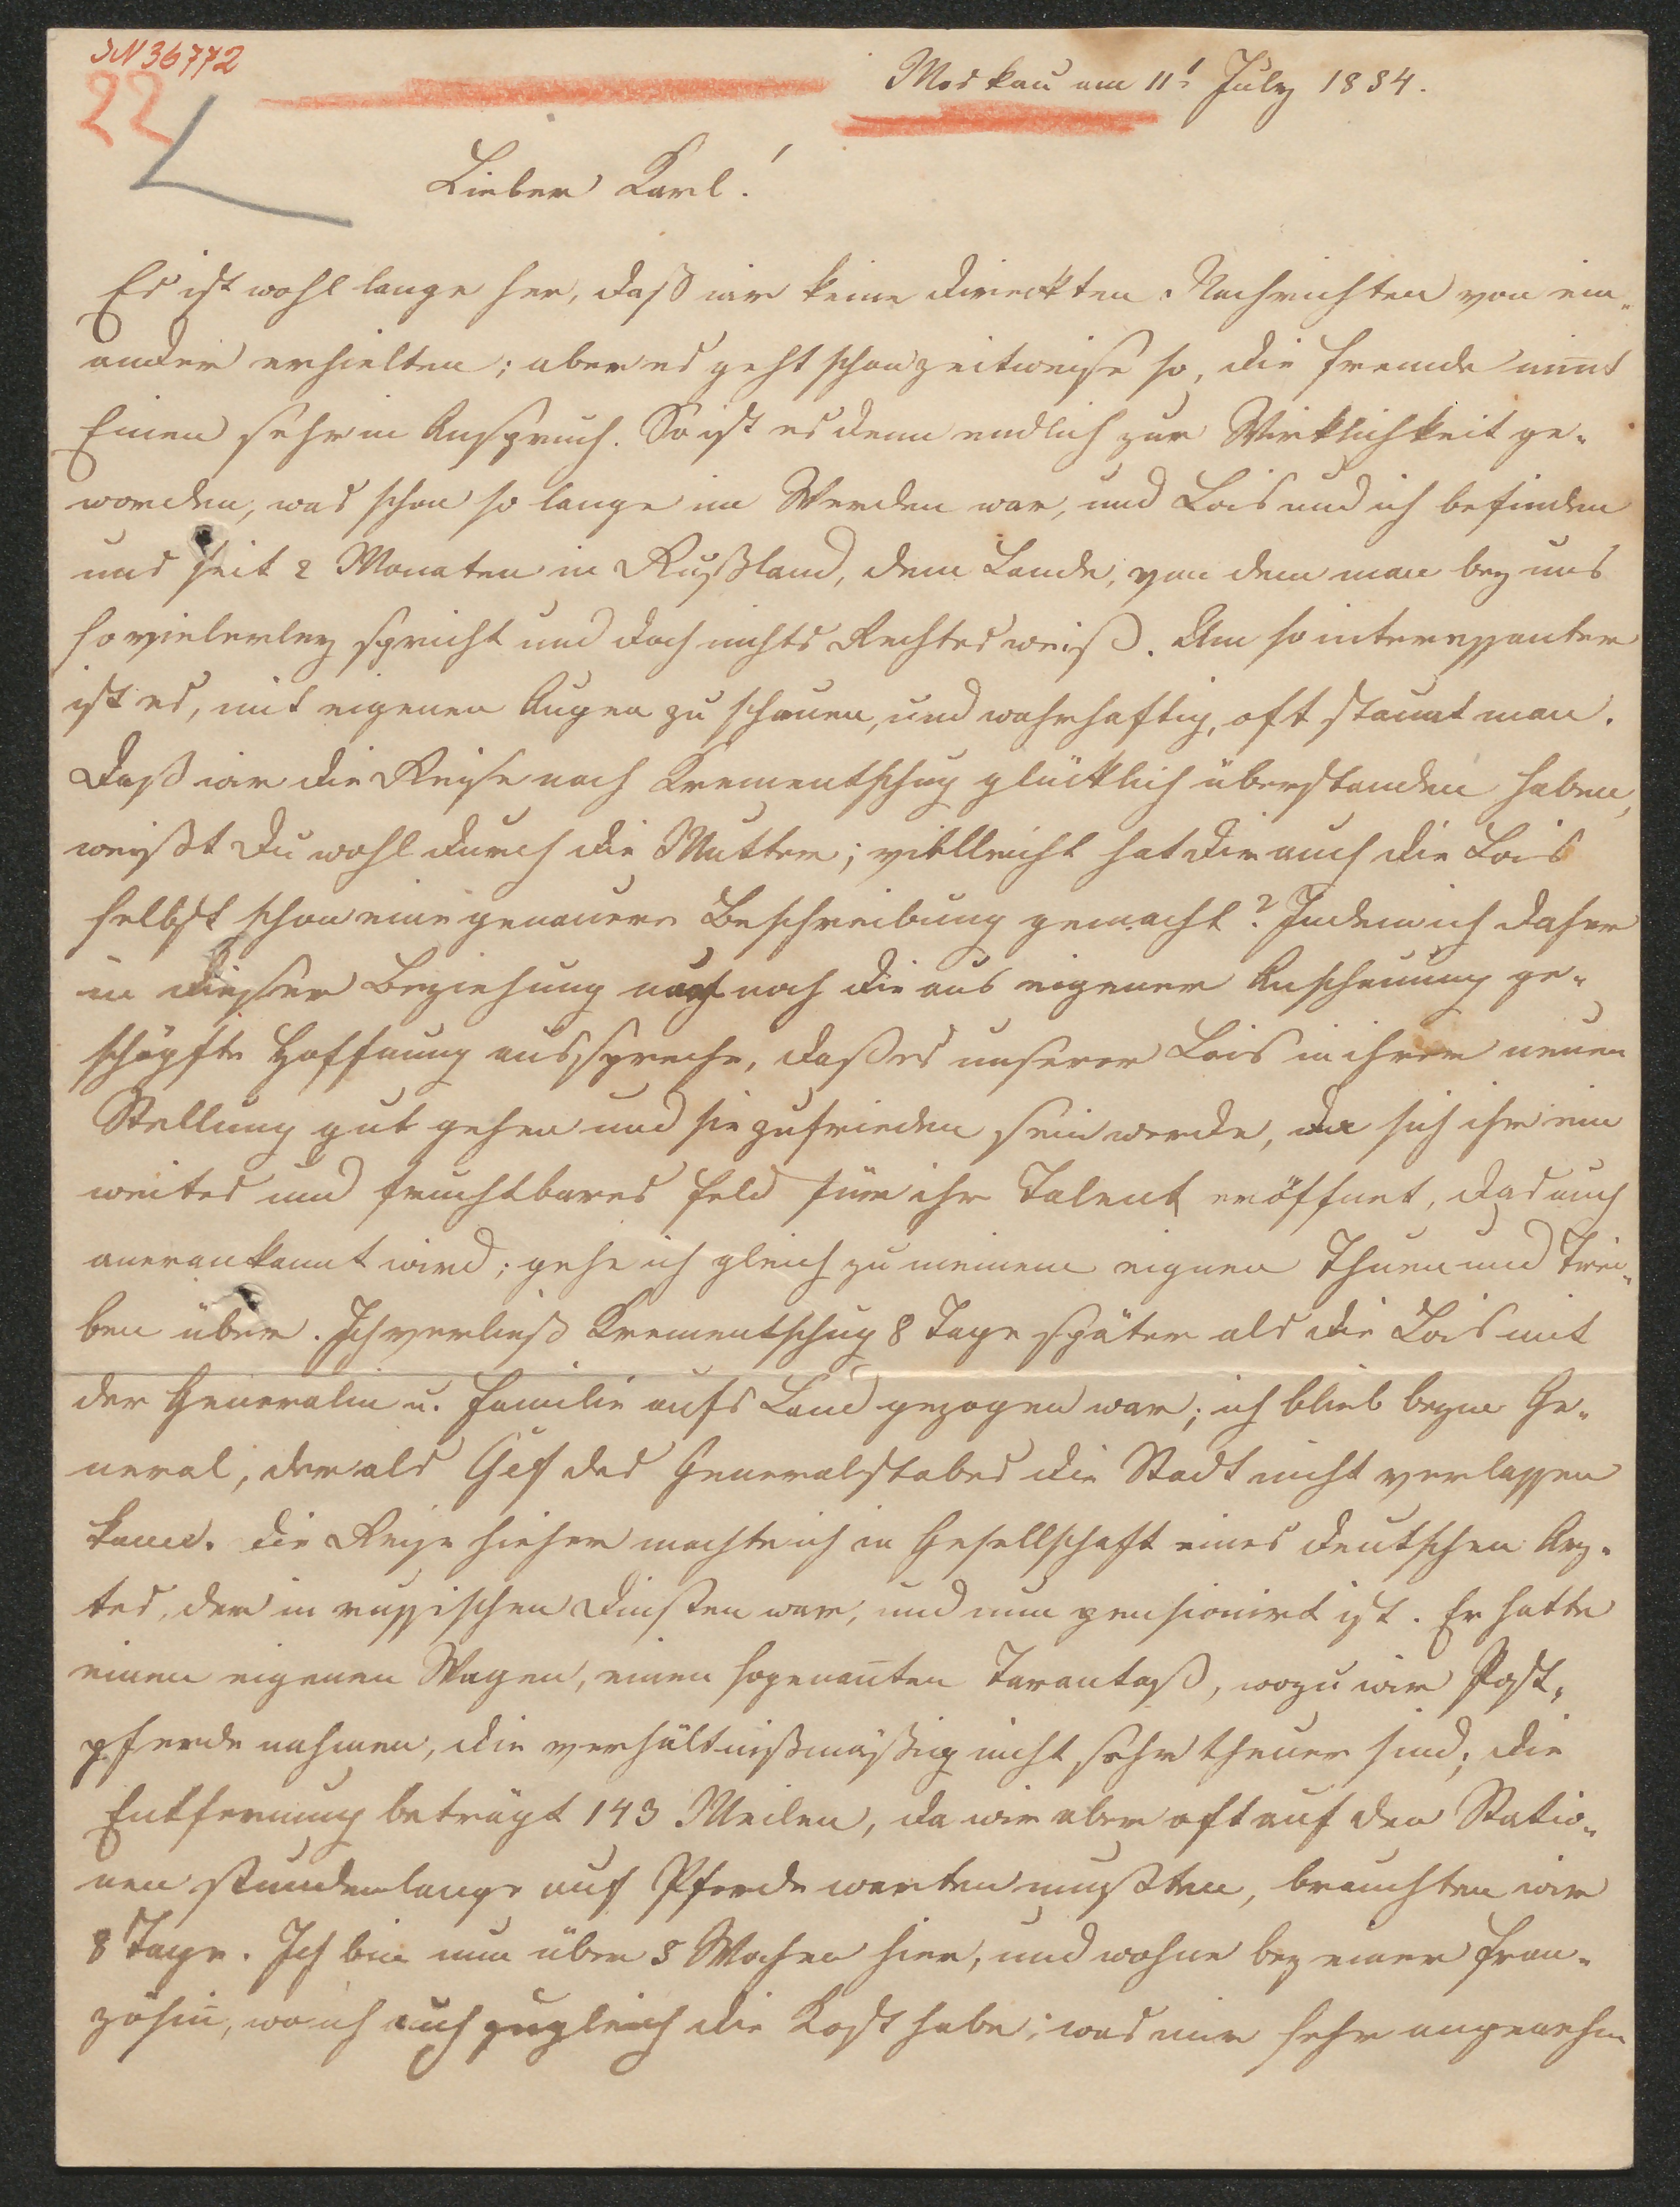 IN 36772
22
Moskau am 11t July 1834.
Lieber Karl!
Es ist wohl lange her, daß wir keine direckten Nachrichten von ein„
ander erhielten; aber es geht schon zeitweise so, die Fremde nim̅t
Einen sehr in Anspruch. So ist es denn endlich zur Wirklichkeit ge„
worden, was schon so lange im Werden war, und Lois und ich befinden
uns seit 2 Monaten in Rußland, dem Lande, von dem man bey uns
so vielerley spricht und doch nichts Rechtes weiß. Um so interessanter
ist es, mit eigenen Augen zu schauen, und wahrhaftig, oft staunt man.
Daß wir die Reise nach Krementschug glücklich überstanden haben,
weißt Du wohl durch die Mutter; villleicht hat dir auch die Lois
selbst schon eine genauere Beschreibung gemacht? Indem ich daher
in dieser Beziehung nur noch die aus eigener Anschauung ge„
schöpfte Hoffnung ausspreche, daß es unserer Lois in ihrer neuen
Stellung gut gehen und sie zufrieden sein werde, da sich ihr ein
weites und fruchtbares Feld für ihr Talent eröffnet, das auch
anerankannt wird; gehe ich gleich zu meinem eignen Thuen und Trei„
ben über. Ich verließ Krementschug 8 Tage später als die Lois mit
der Generalin u. Familie aufs Land gezogen war; ich blieb beym Ge„
neral, der als Chef des Generalstabes die Stadt nicht verlassen
kann. Die Reise hieher machte ich in Gesellschaft eines deutschen Arz„
tes, der in russischen Diensten war, und nun pensionirt ist. Er hatte
einen eigenen Wagen, einen sogenan̅ten Tarantaß, wozu wir Post„
pferde nahmen, die verhältnißmäßig nicht sehr theuer sind; die
Entfernung beträgt 143 Meilen, da wir aber oft auf den Statio„
nen stundenlange auf Pferde warten mußten, brauchten wir
8 Tage. Ich bin nun über 3 Wochen hier, und wohne bey einer Fran„
zösin̅, wo ich auch zugleich die Kost habe; was mir sehr angenehm